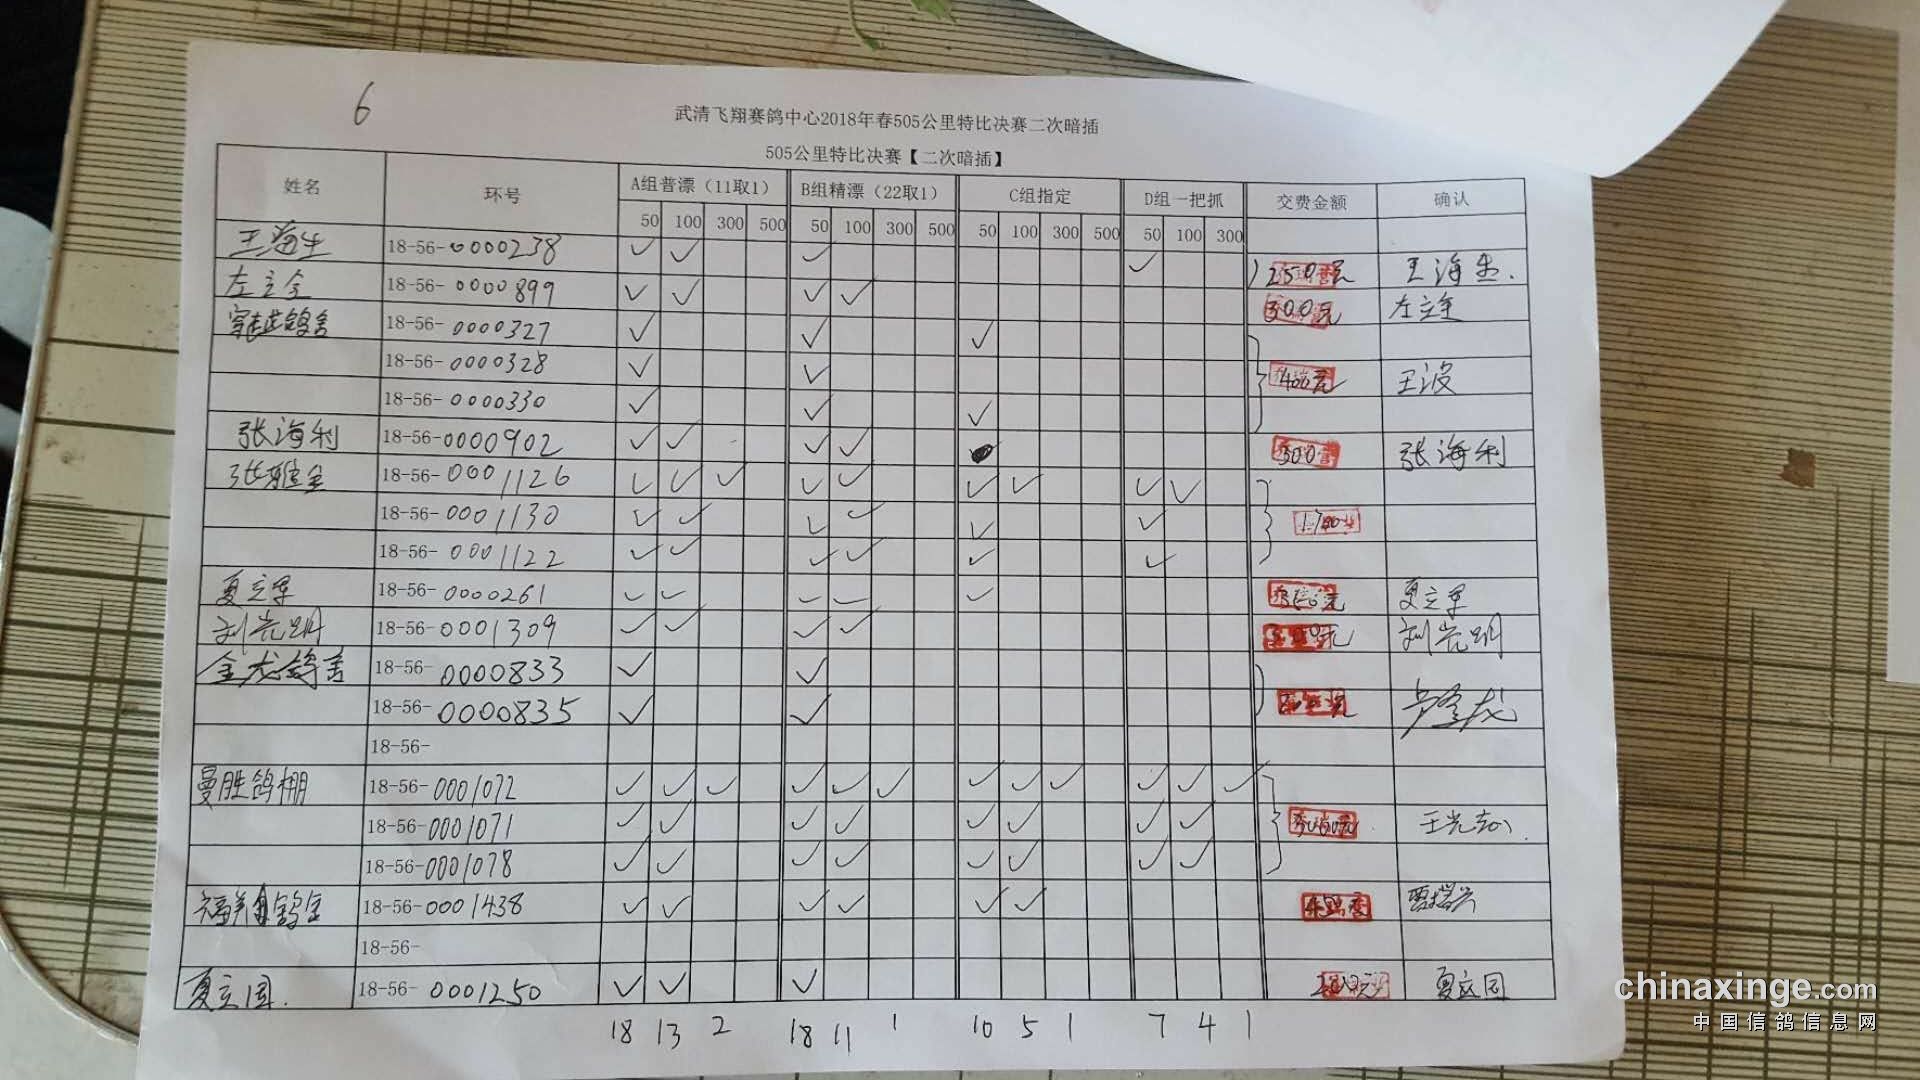 6
武清飞翔赛鸽中心2018年春505公里特比决赛二次暗插
505公里特比决赛【二次暗插】
姓名 环号 A组普漂（11取1） B组精漂（22取1） C组指定 D组一把抓 交费金额 确认
50 100 300 500 50 100 300 500 50 100 300 500 50 100 300
王海生 18-56-0000238 ✓ ✓ ✓ ✓ 250元 王海生.
左立全 18-56-0000899 ✓ ✓ ✓ ✓ 300元 左立全
穿越鸽舍 18-56-0000327 ✓ ✓ ✓
18-56-0000328 ✓ ✓ 400元 王波
18-56-0000330 ✓ ✓ ✓
张海利 18-56-0000902 ✓ ✓ ✓ ✓ 300 张海利
张雅全 18-56-0001126 ✓ ✓ ✓ ✓ ✓ ✓ ✓ ✓ ✓
18-56-0001130 ✓ ✓ ✓ ✓ ✓ ✓
18-56-0001122 ✓ ✓ ✓ ✓ ✓ ✓
夏立军 18-56-0000261 ✓ ✓ ✓ ✓ ✓ 350元 夏立军
刘光明 18-56-0001309 ✓ ✓ ✓ ✓ 300元 刘光明
金龙鸽舍 18-56-0000833 ✓ ✓
18-56-0000835 ✓ ✓ 200元 金龙
18-56-
曼胜鸽棚 18-56-0001072 ✓ ✓ ✓ ✓ ✓ ✓ ✓ ✓ ✓ ✓ ✓ ✓
18-56-0001071 ✓ ✓ ✓ ✓ ✓ ✓ ✓ ✓ 王光
18-56-0001078 ✓ ✓ ✓ ✓ ✓ ✓ ✓ ✓
18-56-0001438 ✓ ✓ ✓ ✓ ✓ ✓ 450
18-56-
夏立国. 18-56-0001250 ✓ ✓ ✓ 200元 夏立国
18 13 2 18 11 1 10 5 1 7 4 1
chinaxinge.com
中国信鸽信息网